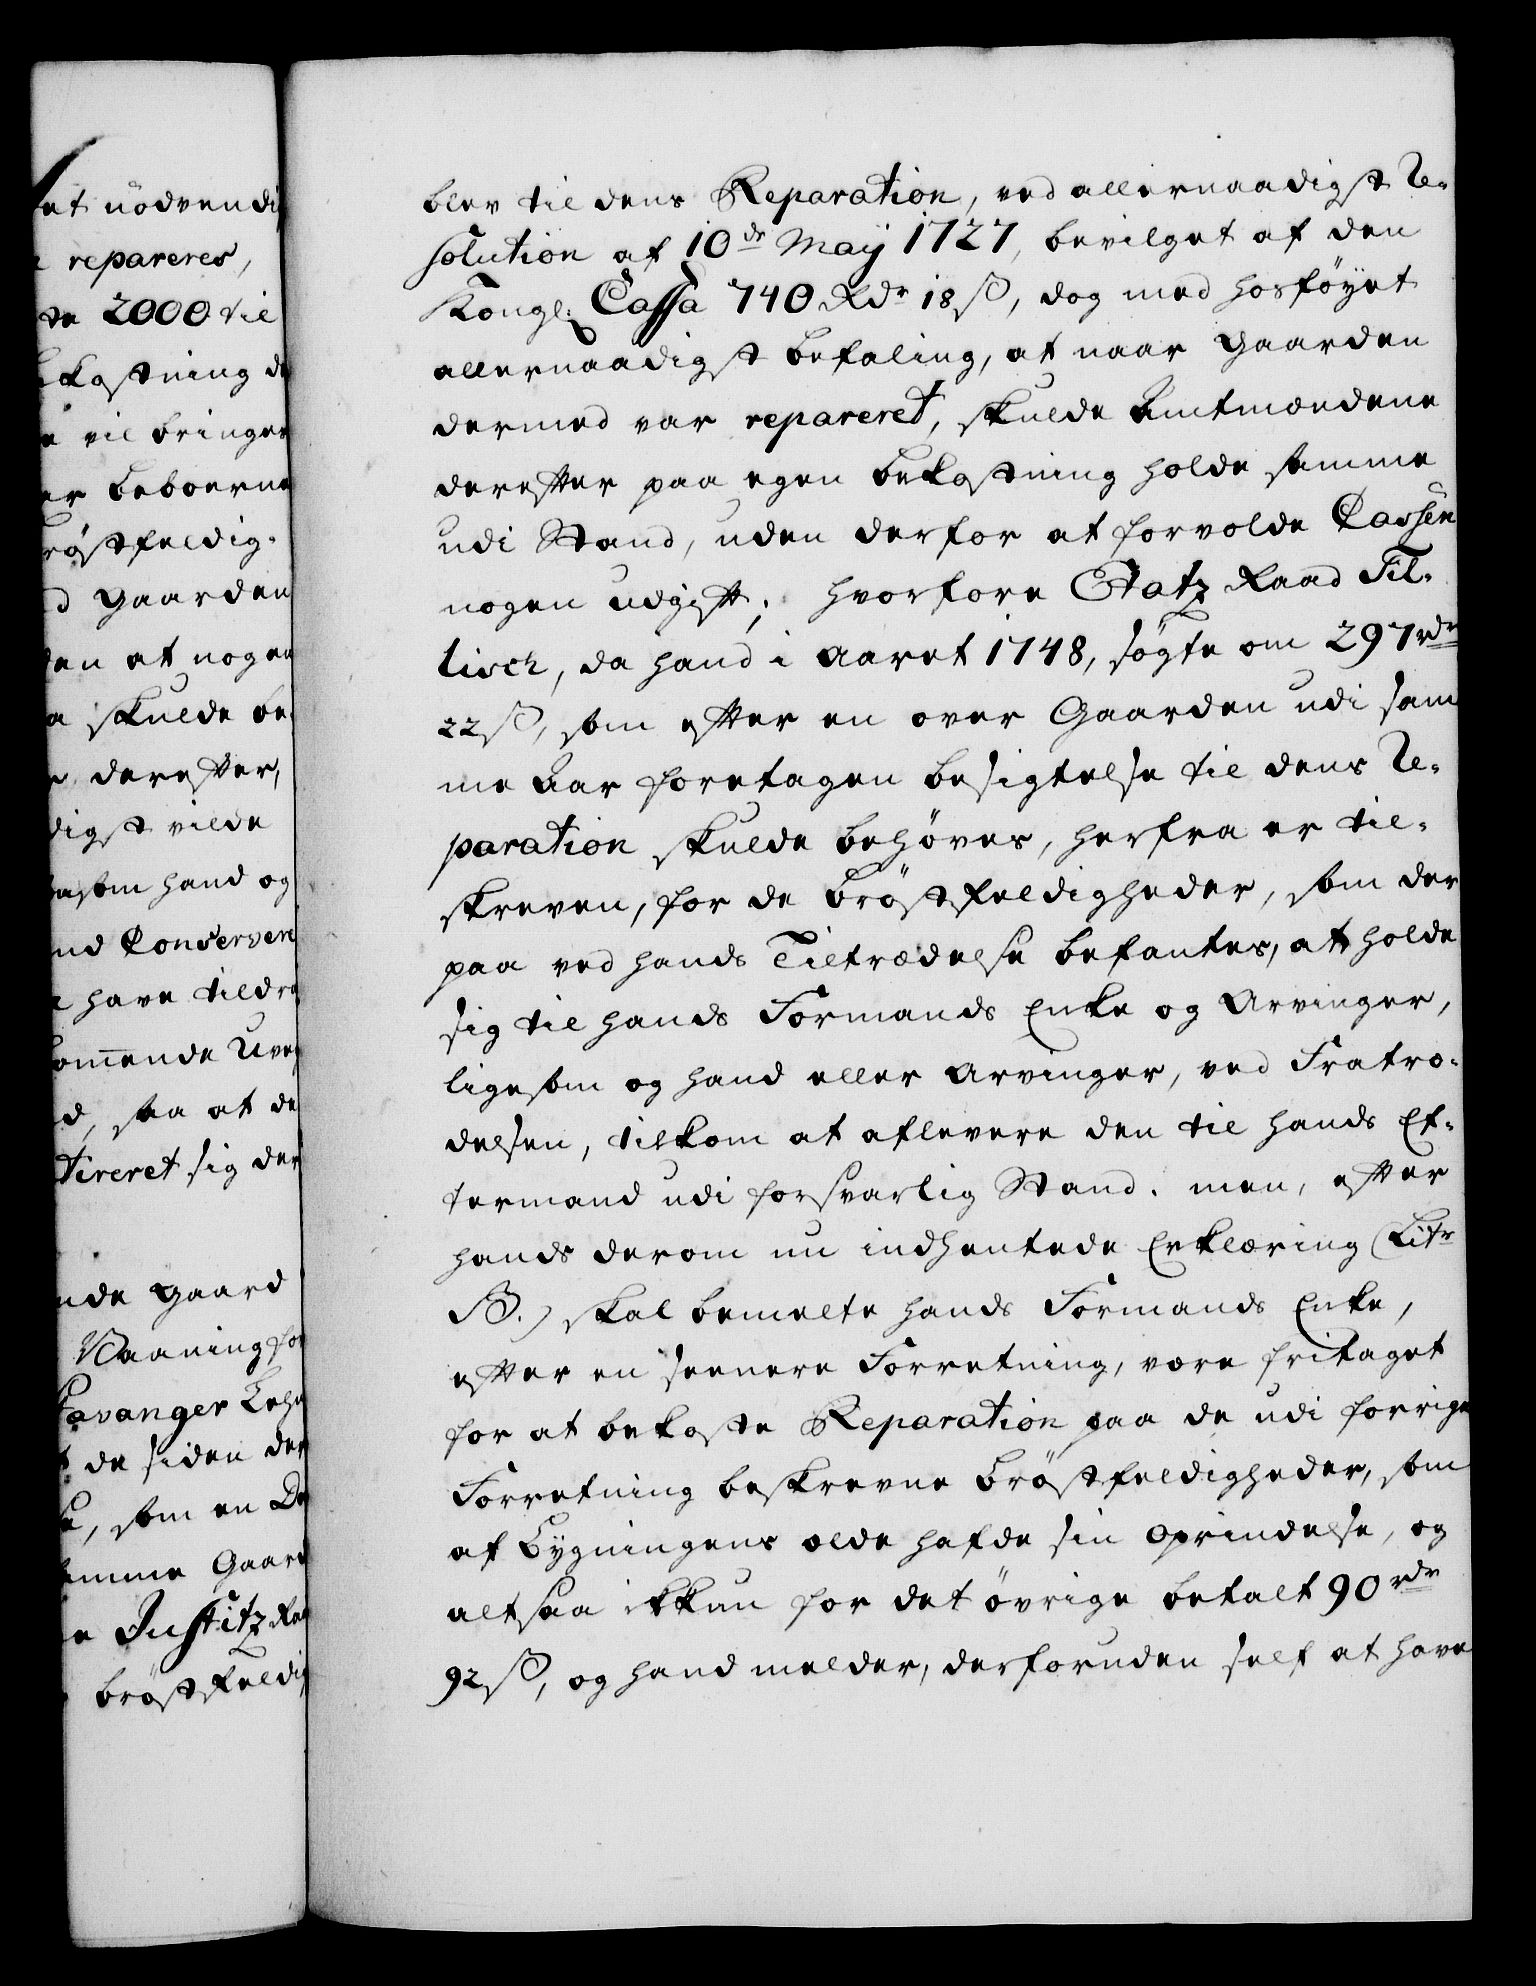 et nödvendi
repareres,
2000 til
kostning d
vil bringes
er beboerne
röstfeldig-
d Gaarden
en at nogen
a skulde be-
derefter,
digst vilde
som hand og
nd Conservere
have tildra
kom̄ende Uve
d, saa at de
tireret sig der
nde Gaard
Vaaning for
Stavanger Lehn
de siden der
som en De
samme Gaard
e Justitz Ra
bröstfeldig
blev til dens Reparation, ved allernaadigst Re-
solution af 10de Maij 1727, bevilget af den
Kongl: Cassa 740 Rdr 18 ß, dog med hosföyet
allernaadigst befaling, at naar Gaarden
dermed var repareret, skulde Amtmændene
derefter paa egen bekostning holde samme
udi Stand, uden derfor at forvolde Cassen
nogen udgift; hvorfore Etatz Raad Til-
lisch, da hand i Aaret 1748, søgte om 297 rdr
22 ß, som efter en over Gaarden udi sam
me Aar foretagen besigtelse til dens Re-
paration skulde behöves, herfra er til-
skreven, for de bröstfeldigheder, som der
paa ved hands Tiltrædelse befantes, at holde
sig til hands Formands Enke og Arvinger,
ligesom og hand eller Arvinger, ved Fratræ-
delsen, tilkom at aflevere den til hands Ef-
termand udi forsvarlig Stand. men, efter
hands derom nu indhentede Erklæring (Litr
B.) skal bemelte hands Formands Enke,
efter en seenere Forretning, være fritaget
for at bekoste Reparation paa de udi forrige
Forretning beskrevne bröstfeldigheder, som
af Bygningens ælde hafde sin Oprindelse, og
altsaa ikkun for det övrige betalt 90 rdr
92 ß, og hand melder, desforuden self at have